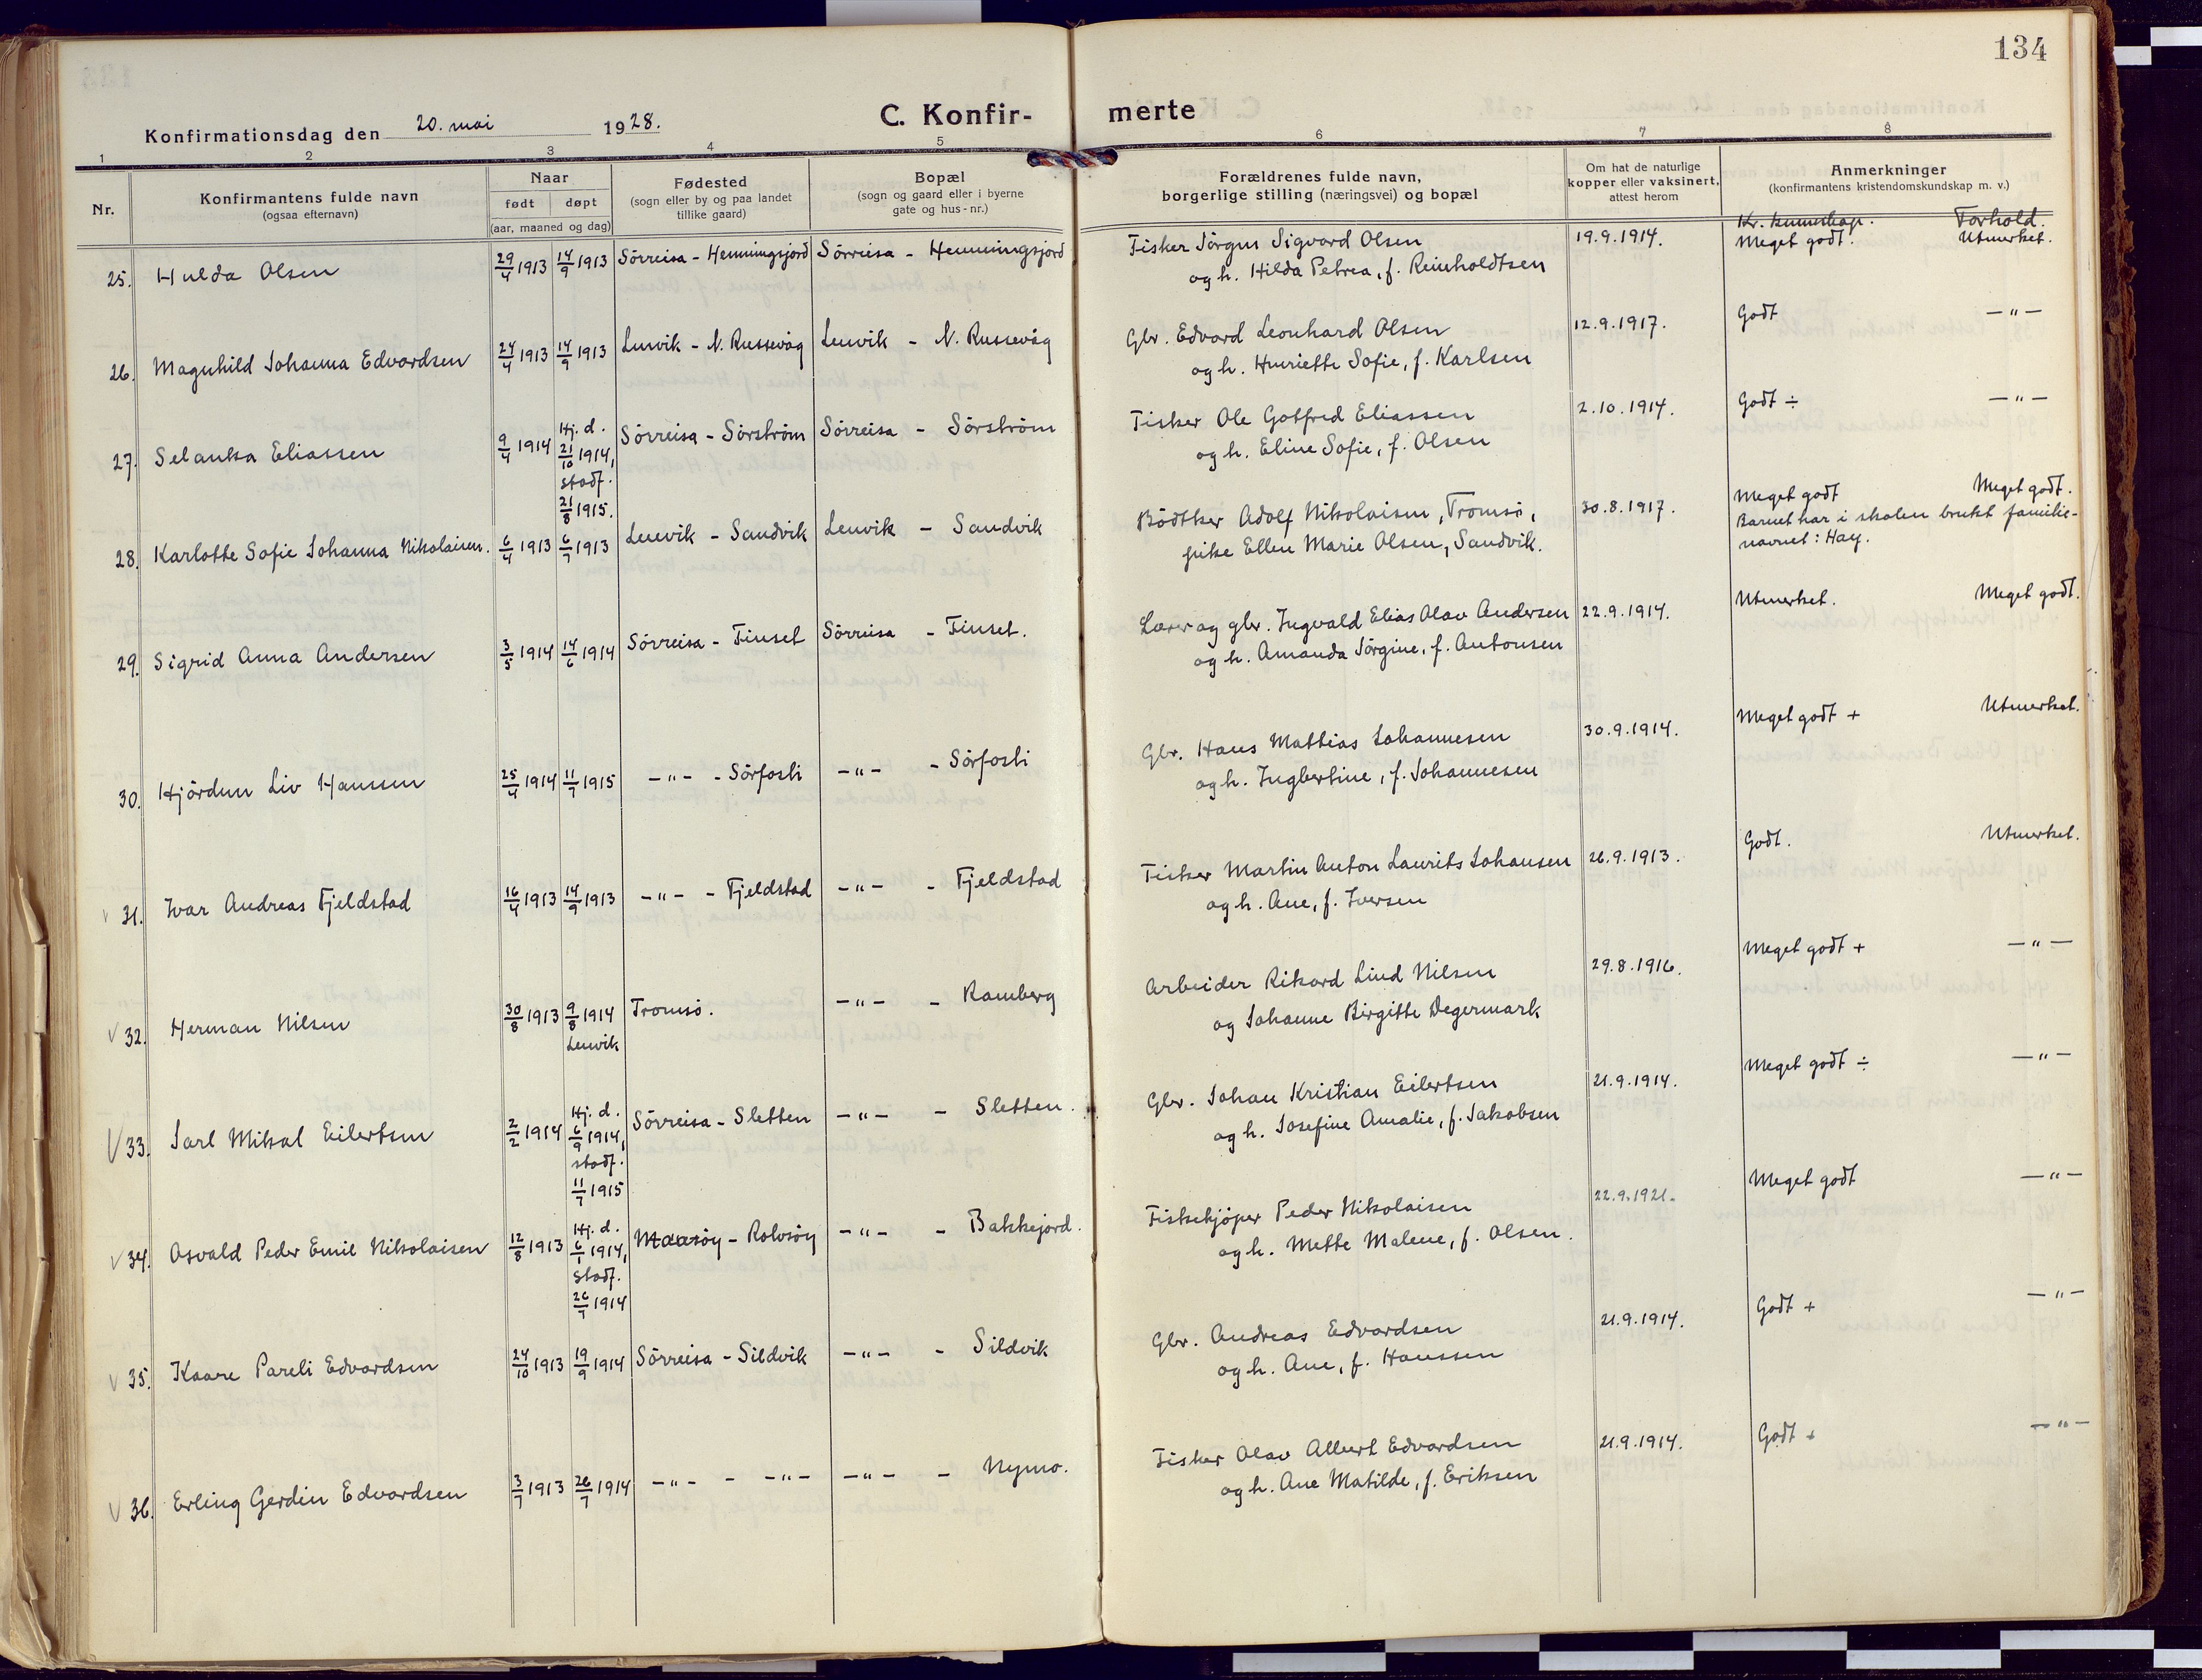 134
C. Konfir- merte
Konfirmationsdag den 20. mai 1928.
1 2 3 4 5 6 7 8
Nr.
Konfirmantens fulde navn
(ogsaa efternavn)
Naar
født døpt
(aar, maaned og dag)
Fødested
(sogn eller by og paa landet
tillike gaard)
Bopæl
(sogn og gaard eller i byerne
gate og hus-nr.)
Forældrenes fulde navn,
borgerlige stilling (næringsvei) og bopæl
Om hat de naturlige
kopper eller vaksinert,
attest herom
Anmerkninger
(konfirmantens kristendomskundskap m. v.)
Kr. kunnskap. Forhold.
25. Hulda Olsen 29/4 1913 14/9 1913 Sörreisa - Henningsjord Sörreisa - Henningsjord Fisker Jörgen Sigvard Olsen 19.9.1914. Meget godt. Utmerket.
og h. Hilda Petrea, f. Reinholdtsen
26. Magnhild Johanna Edvardsen 24/4 1913 14/9 1913 Lenvik - N. Russevåg Lenvik - N. Russevåg Gbr. Edvard Leonhard Olsen 12.9.1917. Godt —"—
og h. Henriette Sofie, f. Karlsen
27. Selanka Eliassen 9/4 1914 Hj. d. 21/10 1914, stadf. 21/8 1915. Sörreisa - Sörström Sörreisa - Sörström Fisker Ole Gotfred Eliassen 2.10.1914. Godt ÷ —"—
og h. Eline Sofie, f. Olsen
28. Karlotte Sofie Johanna Nikolaisen. 6/4 1913 6/7 1913 Lenvik - Sandvik Lenvik - Sandvik Bödtker Adolf Nikolaisen, Tromsö, 30.8.1917. Meget godt Meget godt.
pike Ellen Marie Olsen, Sandvik.
Barnet har i skolen brukt familie-
navnet: Hay.
29. Sigrid Anna Andersen 3/5 1914 14/6 1914 Sörreisa - Finset Sörreisa - Finset. Lærer og gbr. Ingvald Elias Olav Andersen 22.9.1914. Utmerket. Meget godt.
og h. Amanda Jörgine, f. Antonsen
30. Hjördun Liv Hansen 25/4 1914 11/7 1915 —"— - Sörfosli —"— - Sörfosli Gbr. Hans Mathias Johannesen 30.9.1914. Meget godt + Utmerket.
og h. Ingbertine, f. Johannesen
31. Ivar Andreas Fjeldstad 16/4 1913 14/9 1913 —"— - Fjeldstad —"— - Fjeldstad Fisker Martin Anton Laurits Johansen 26.9.1913. Godt. Utmerket.
og h. Ane, f. Iversen
32. Herman Nilsen 30/8 1913 9/8 1914 Lenvik Tromsö. —"— - Ramberg Arbeider Rikard Lind Nilsen 29.8.1916. Meget godt + —"—
og Johanne Birgitte Degermark
33. Jarl Mikal Eilertsen 2/2 1914 Hj. d. 6/9 1914, stadf. 11/7 1915 Sörreisa - Sletten —"— - Sletten. Gbr. Johan Kristian Eilertsen 21.9.1914. Meget godt ÷ —"—
og h. Josefine Amalie, f. Jakobsen
34. Osvald Peder Emil Nikolaisen 12/8 1913 Hj. d. 6/1 1914, stadf. 26/7 1914 Maasöy - Rolvsöy —"— - Bakkejord. Fiskekjöper Peder Nikolaisen 22.9.1921. Meget godt —"—
og h. Mette Malene, f. Olsen.
35. Kaare Pareli Edvardsen 24/10 1913 19/9 1914 Sörreisa - Sildvik —"— - Sildvik Gbr. Andreas Edvardsen 21.9.1914. Godt + —"—
og h. Ane, f. Hanssen
36. Erling Gerdin Edvardsen 3/7 1913 26/7 1914 —"— - —"— —"— - Nymo. Fisker Olav Albert Edvardsen 21.9.1914. Godt + —"—
og h. Ane Matilde, f. Eriksen